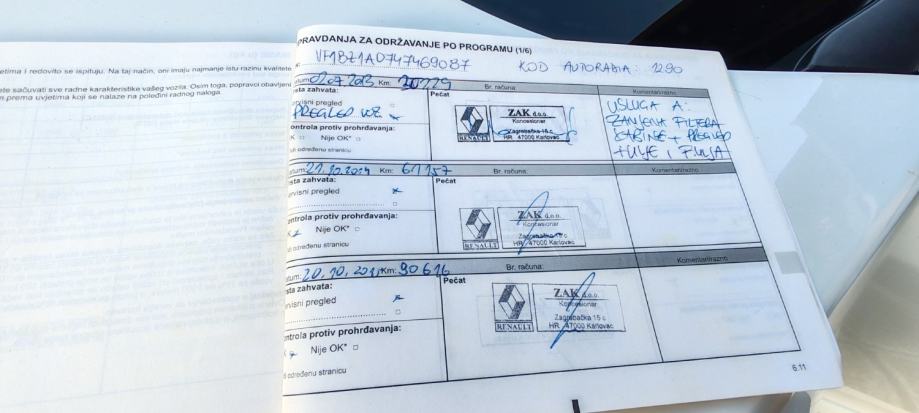 etima i redovito se ispituju. Na taj način, oni imaju najmanje istu razinu kvalitete
ete sačuvati sve radne karakteristike vašeg vozila. Osim toga, popravci obavljeni
prema uvjetima koji se nalaze na poleđini radnog naloga.
PRAVDANJA ZA ODRŽAVANJE PO PROGRAMU (1/6)
KOD AUTORADIA: 1290
Km:
Br. računa:
Komentari/razno
sta zahvata:
Pečat
rvisni pregled
PREGLED
ontrola protiv prohrđavanja:
Nije OK*
određenu stranicu
RENAULT
ZAK d.o.o.
Koncesionar
Zagrebačka 15 c
HR 47000 Karlovac
USLUGA A:
ZAMJENA FILTERA
+ PREGLED
tum: 21.10.2014 Km: 61157
Br. računa:
Komentari/razno
sta zahvata:
Pečat
rvisni pregled
ontrola protiv prohrđavanja:
Nije OK*
određenu stranicu
RENAULT
ZAK d.o.o.
Koncesionar
Zagrebačka 15 c
HR 47000 Karlovac
tum: 20.10. Km: 90616
Br. računa:
Komentari/razno
sta zahvata:
Pečat
rvisni pregled
ontrola protiv prohrđavanja:
Nije OK*
određenu stranicu
RENAULT
ZAK d.o.o.
Koncesionar
Zagrebačka 15 c
HR 47000 Karlovac
6.11